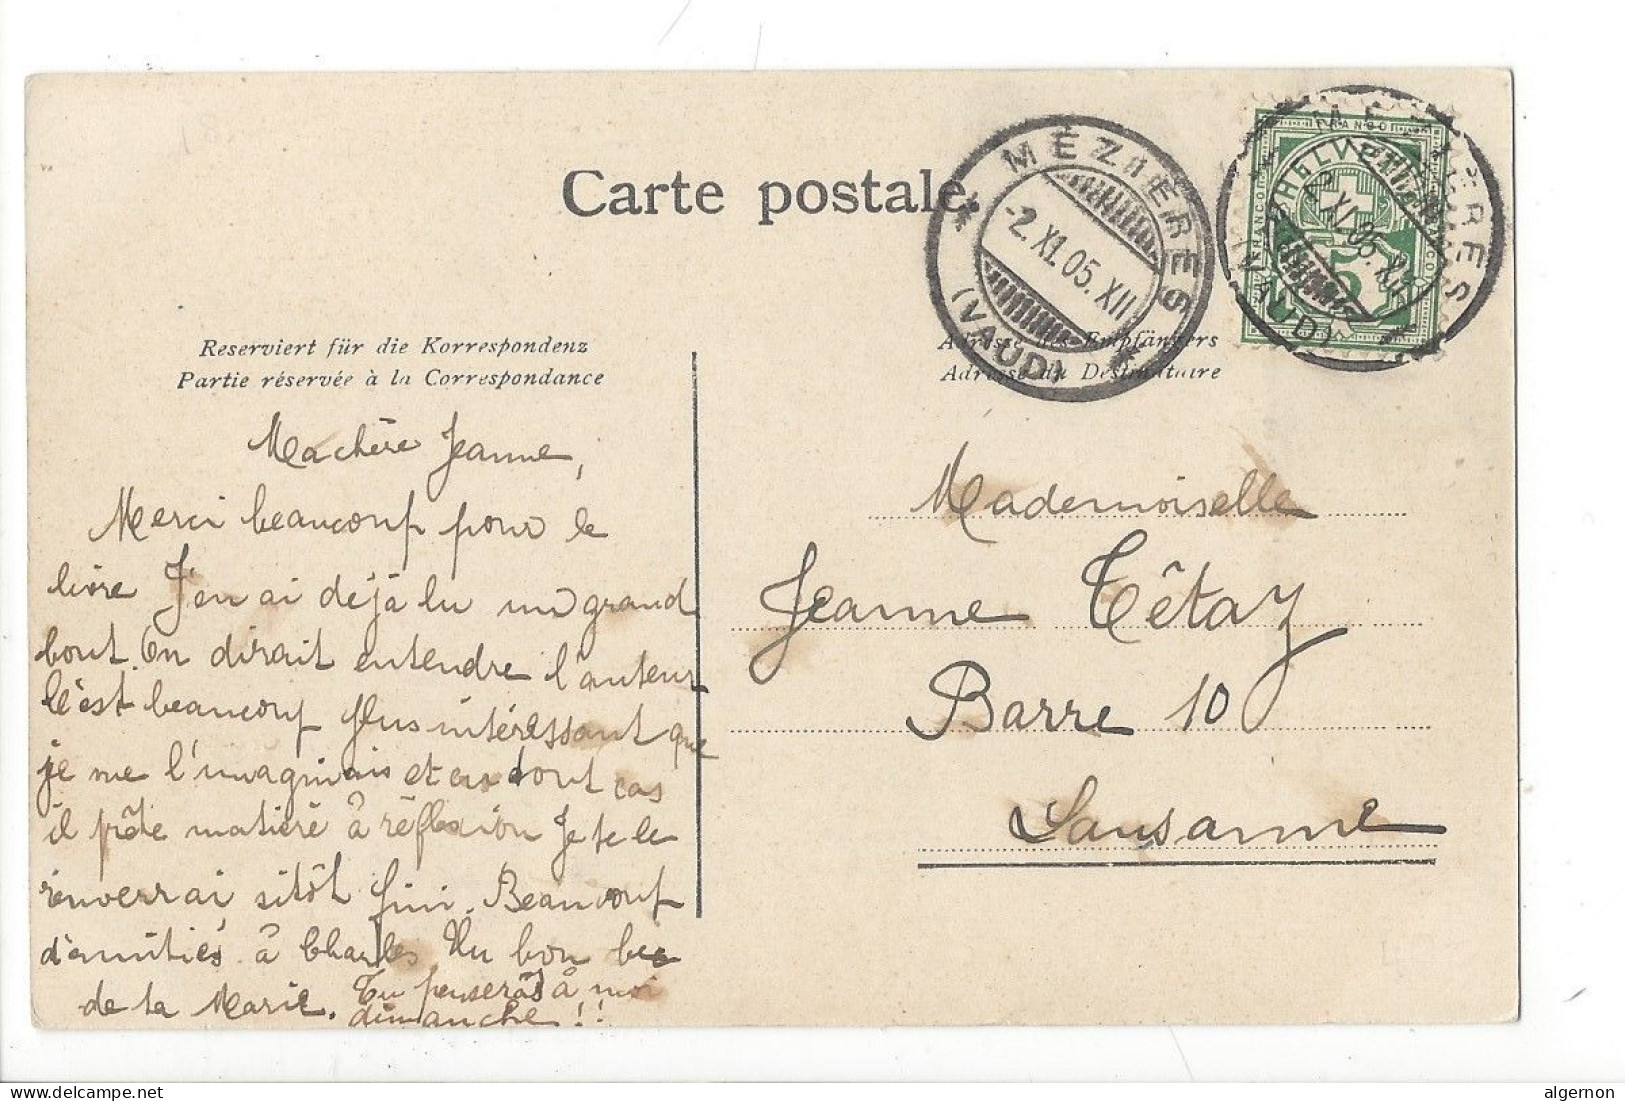 Carte postale
MÉZIÈRES
-2.XI.05.XII
(VAUD)
MÉZIÈRES
-2.XI.05.XII
(VAUD)
FRANCO
HELVETIA
5
Reserviert für die Korrespondenz
Partie réservée à la Correspondance
Adresse des Empfängers
Adresse du Destinataire
Ma chère Jeanne,
Merci beaucoup pour le
livre J'en ai déjà lu un grand
bout. On dirait entendre l'auteur
C'est beaucoup plus intéressant que
je me l'imaginais et en tout cas
il prête matière à réflexion Je te le
renverrai sitôt fini. Beaucoup
d'amitiés à Charles Un bon bec
de ta Marie. Tu penseras à moi
dimanche!!
Mademoiselle
Jeanne Têtaz
Barre 10
Lausanne
delcampe.net
algernon